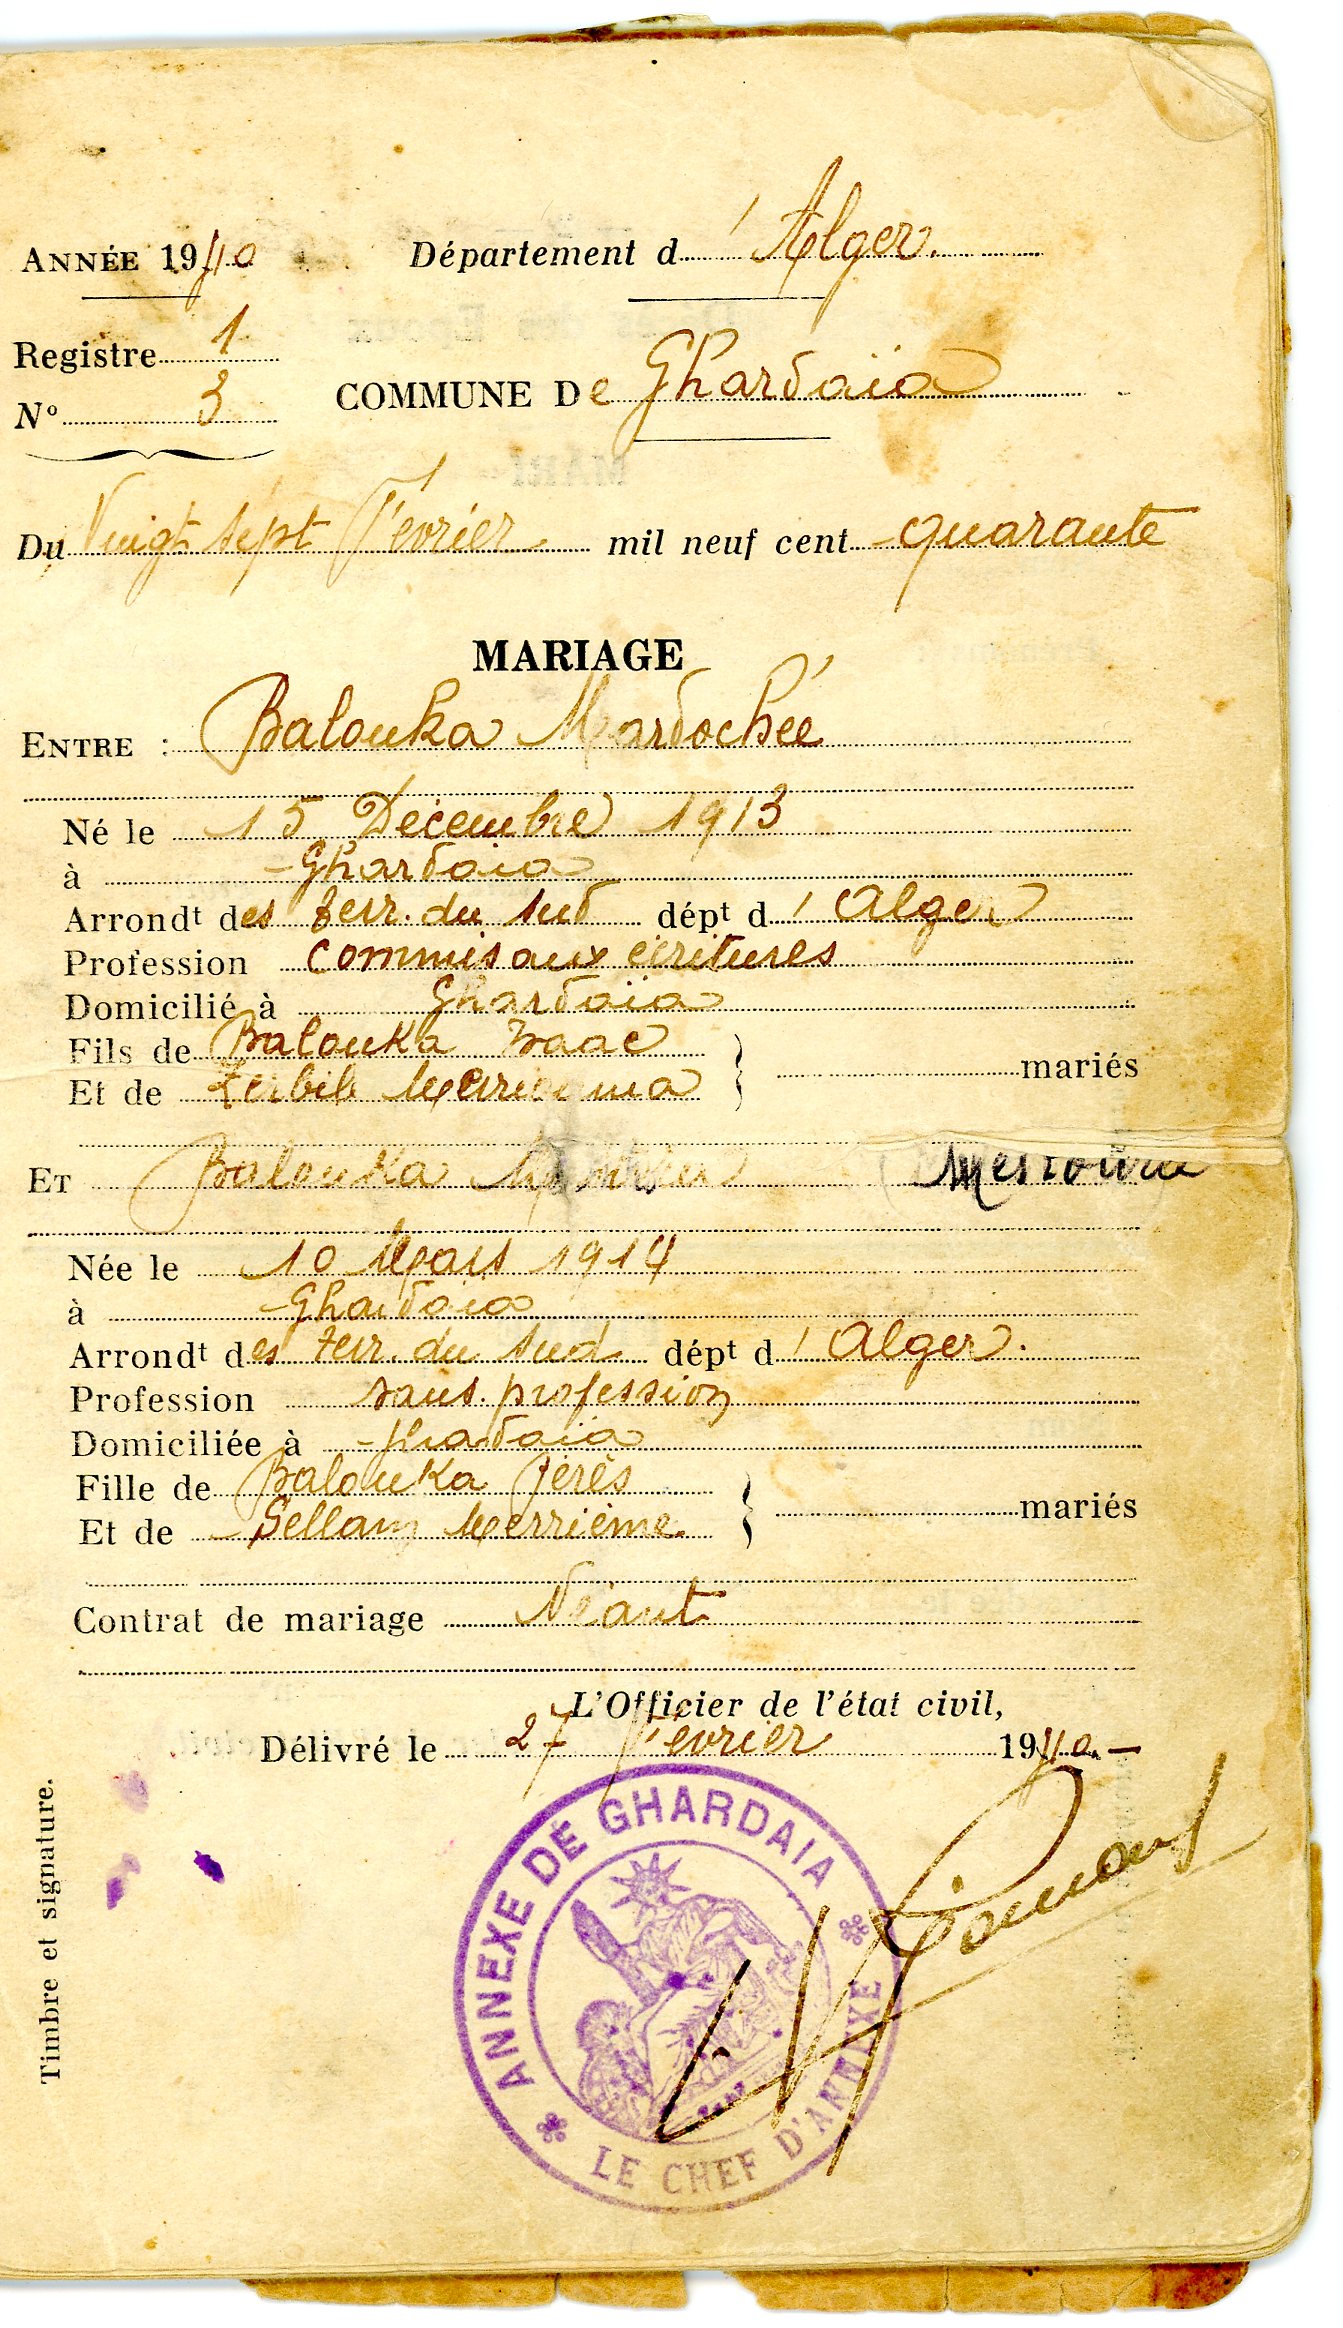 ANNÉE 1940
Département d'Alger.
Registre 1
N° 3
COMMUNE De Ghardaïa
Du Vingt sept Février mil neuf cent quarante
MARIAGE
ENTRE : Balouka Mardochée
Né le 15 Décembre 1913
à Ghardaïa
Arrondt des terr. du sud dépt d'Alger
Profession commis aux écritures
Domicilié à Ghardaïa
Fils de Balouka Isaac
Et de Zerbib
mariés
ET Balouka
Née le 10 Mars 1914
à Ghardaïa
Arrondt des terr. du sud dépt d'Alger.
Profession sans profession
Domiciliée à Ghardaïa
Fille de Balouka Pérès
Et de Sellam Merrième
mariés
Contrat de mariage Néant
L'Officier de l'état civil,
Délivré le 27 Février 1940.
Timbre et signature.
ANNEXE DE GHARDAIA
LE CHEF D'ANNEXE